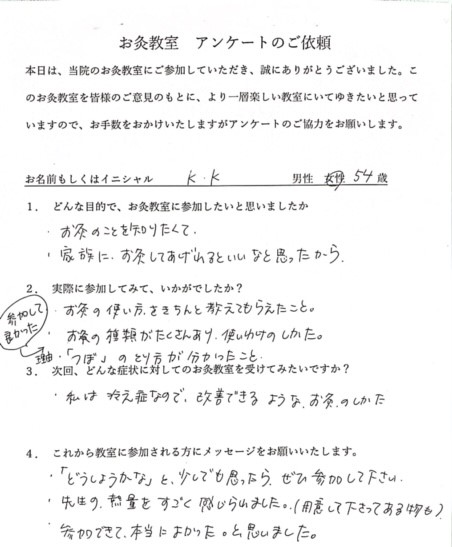 お灸教室　アンケートのご依頼
本日は、当院のお灸教室にご参加していただき、誠にありがとうございました。こ
のお灸教室を皆様のご意見のもとに、より一層楽しい教室にいてゆきたいと思って
いますので、お手数をおかけいたしますがアンケートのご協力をお願いします。
お名前もしくはイニシャル　K.K　男性　女性　54歳
1．どんな目的で、お灸教室に参加したいと思いましたか
・お灸のことを知りたくて、
・家族に、お灸してあげれるといいなと思ったから、
2．実際に参加してみて、いかがでしたか？
参加して
良かった
・お灸の使い方、をきちんと教えてもらえたこと。
・お灸の種類がたくさんあり、使いわけのしかた。
理由・「つぼ」のとり方が分かったこと、
3．次回、どんな症状に対してのお灸教室を受けてみたいですか？
・私は冷え症なので、改善できるような、お灸、のしかた
4．これから教室に参加される方にメッセージをお願いいたします。
・「どうしようかな」と、少しでも思ったら、ぜひ参加して下さい、
・先生の、熱量をすごく感じられました。（用意して下さってある物も）
・参加できて、本当によかった。と思いました。